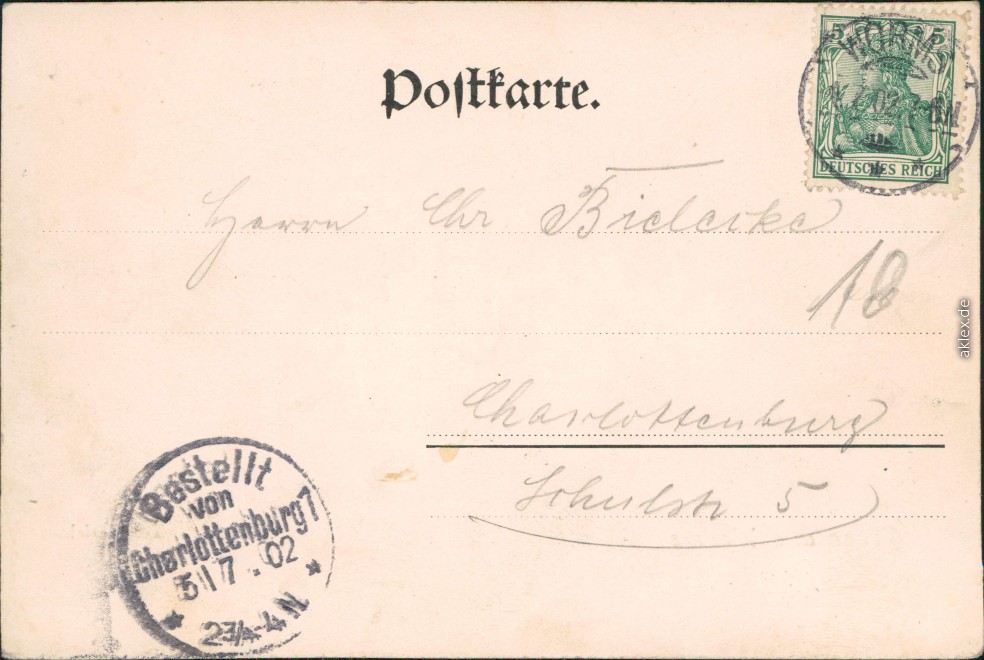 Postkarte.
5 5
WORMS
02
DEUTSCHES REICH
Herrn Chr Bielecke
18
Charlottenburg
Schulstr 5
Bestellt
von
Charlottenburg 1
5 7 02
2¾-4 N
aklex.de